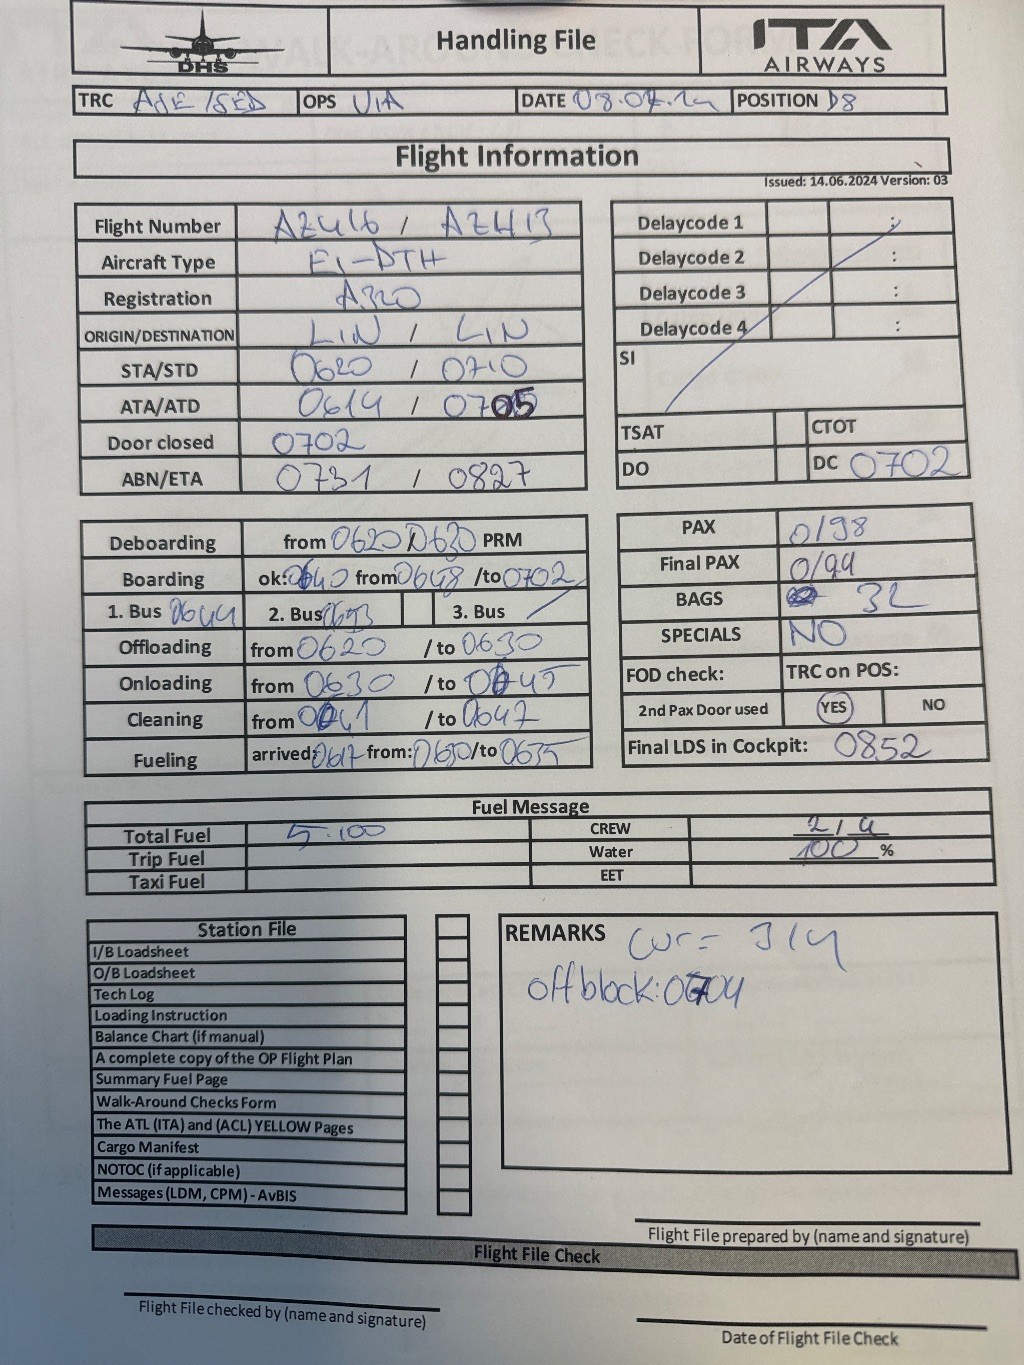 DHS
Handling File
ITA
AIRWAYS
TRC OPS VIA DATE POSITION D8
Flight Information
Issued: 14.06.2024 Version: 03
Flight Number AZ416 / AZ413
Aircraft Type EI-DTH
Registration A320
ORIGIN/DESTINATION LIN / LIN
STA/STD 0620 / 0710
ATA/ATD 0614 / 0705
Door closed 0702
ABN/ETA 0731 / 0827
Delaycode 1 :
Delaycode 2 :
Delaycode 3 :
Delaycode 4 :
SI
TSAT CTOT
DO DC 0702
Deboarding from 0620 0630 PRM
Boarding ok: 0640 from 0648 /to 0702
1. Bus 0644 2. Bus 0653 3. Bus
Offloading from 0620 /to 0630
Onloading from 0630 /to 0645
Cleaning from 0641 /to 0647
Fueling arrived: 0617 from: 0630 /to 0635
PAX 0/98
Final PAX 0/94
BAGS 32
SPECIALS NO
FOD check: TRC on POS:
2nd Pax Door used YES NO
Final LDS in Cockpit: 0852
Fuel Message
Total Fuel 5.100 CREW 2/4
Trip Fuel Water 100 %
Taxi Fuel EET
Station File
I/B Loadsheet
O/B Loadsheet
Tech Log
Loading Instruction
Balance Chart (if manual)
A complete copy of the OP Flight Plan
Summary Fuel Page
Walk-Around Checks Form
The ATL (ITA) and (ACL) YELLOW Pages
Cargo Manifest
NOTOC (if applicable)
Messages (LDM, CPM) - AvBIS
REMARKS = 3/4
offblock: 0704
Flight File prepared by (name and signature)
Flight File Check
Flight File checked by (name and signature)
Date of Flight File Check